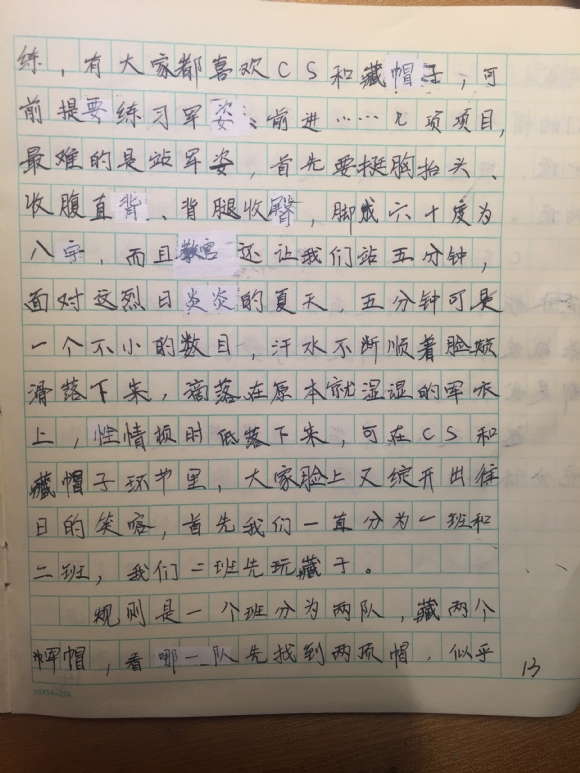 练，有大家都喜欢CS和藏帽子，可
前提要练习军姿、前进……几项项目，
最难的是站军姿，首先要挺胸抬头、
收腹直背、背腿收臀，脚成六十度为
八字，而且教官还让我们站五分钟，
面对这烈日炎炎的夏天，五分钟可是
一个不小的数目，汗水不断顺着脸颊
滑落下来，滴落在原本就湿湿的军衣
上，性情顿时低落下来，可在CS和
藏帽子环节里，大家脸上又绽开出往
日的笑容，首先我们一直分为一班和
二班，我们二班先玩藏子。
规则是一个班分为两队，藏两个
军帽，看哪一队先找到两顶帽，似乎
13
16X14=224